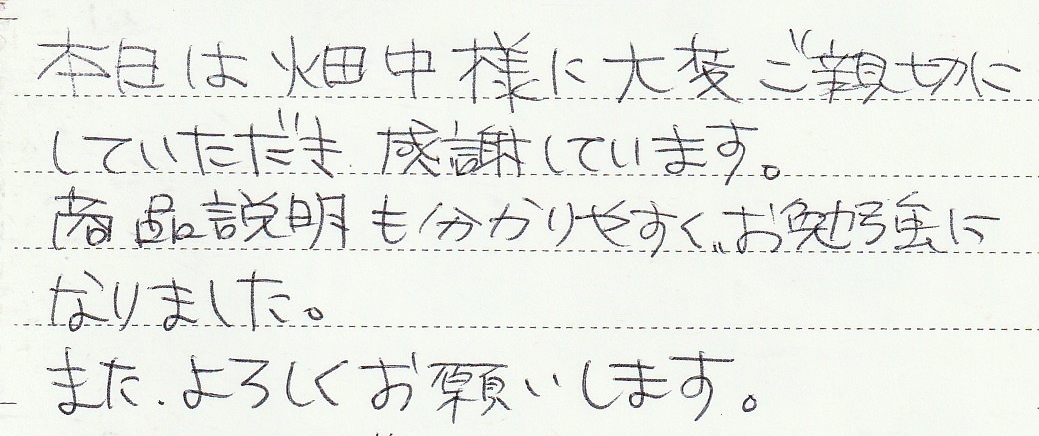 本日は畑中様に大変ご親切に
していただき、感謝しています。
商品説明も分かりやすく、お勉強に
なりました。
また、よろしくお願いします。